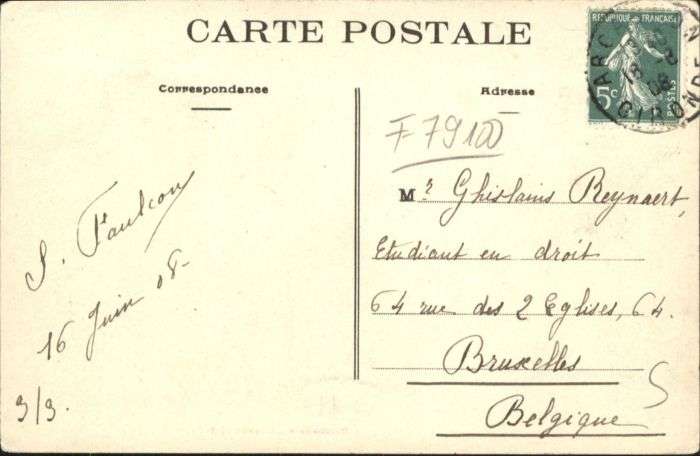 CARTE POSTALE
Correspondance
Adresse
REPUBLIQUE FRANÇAISE
5c
POSTES
ARC
GIRONDE
F-79100
S. Faulcon
16 Juin 08-
3/3.
Mr Ghislains Reynaert,
Etudiant en droit
64 rue des 2 Eglises, 64.
Bruxelles
Belgique